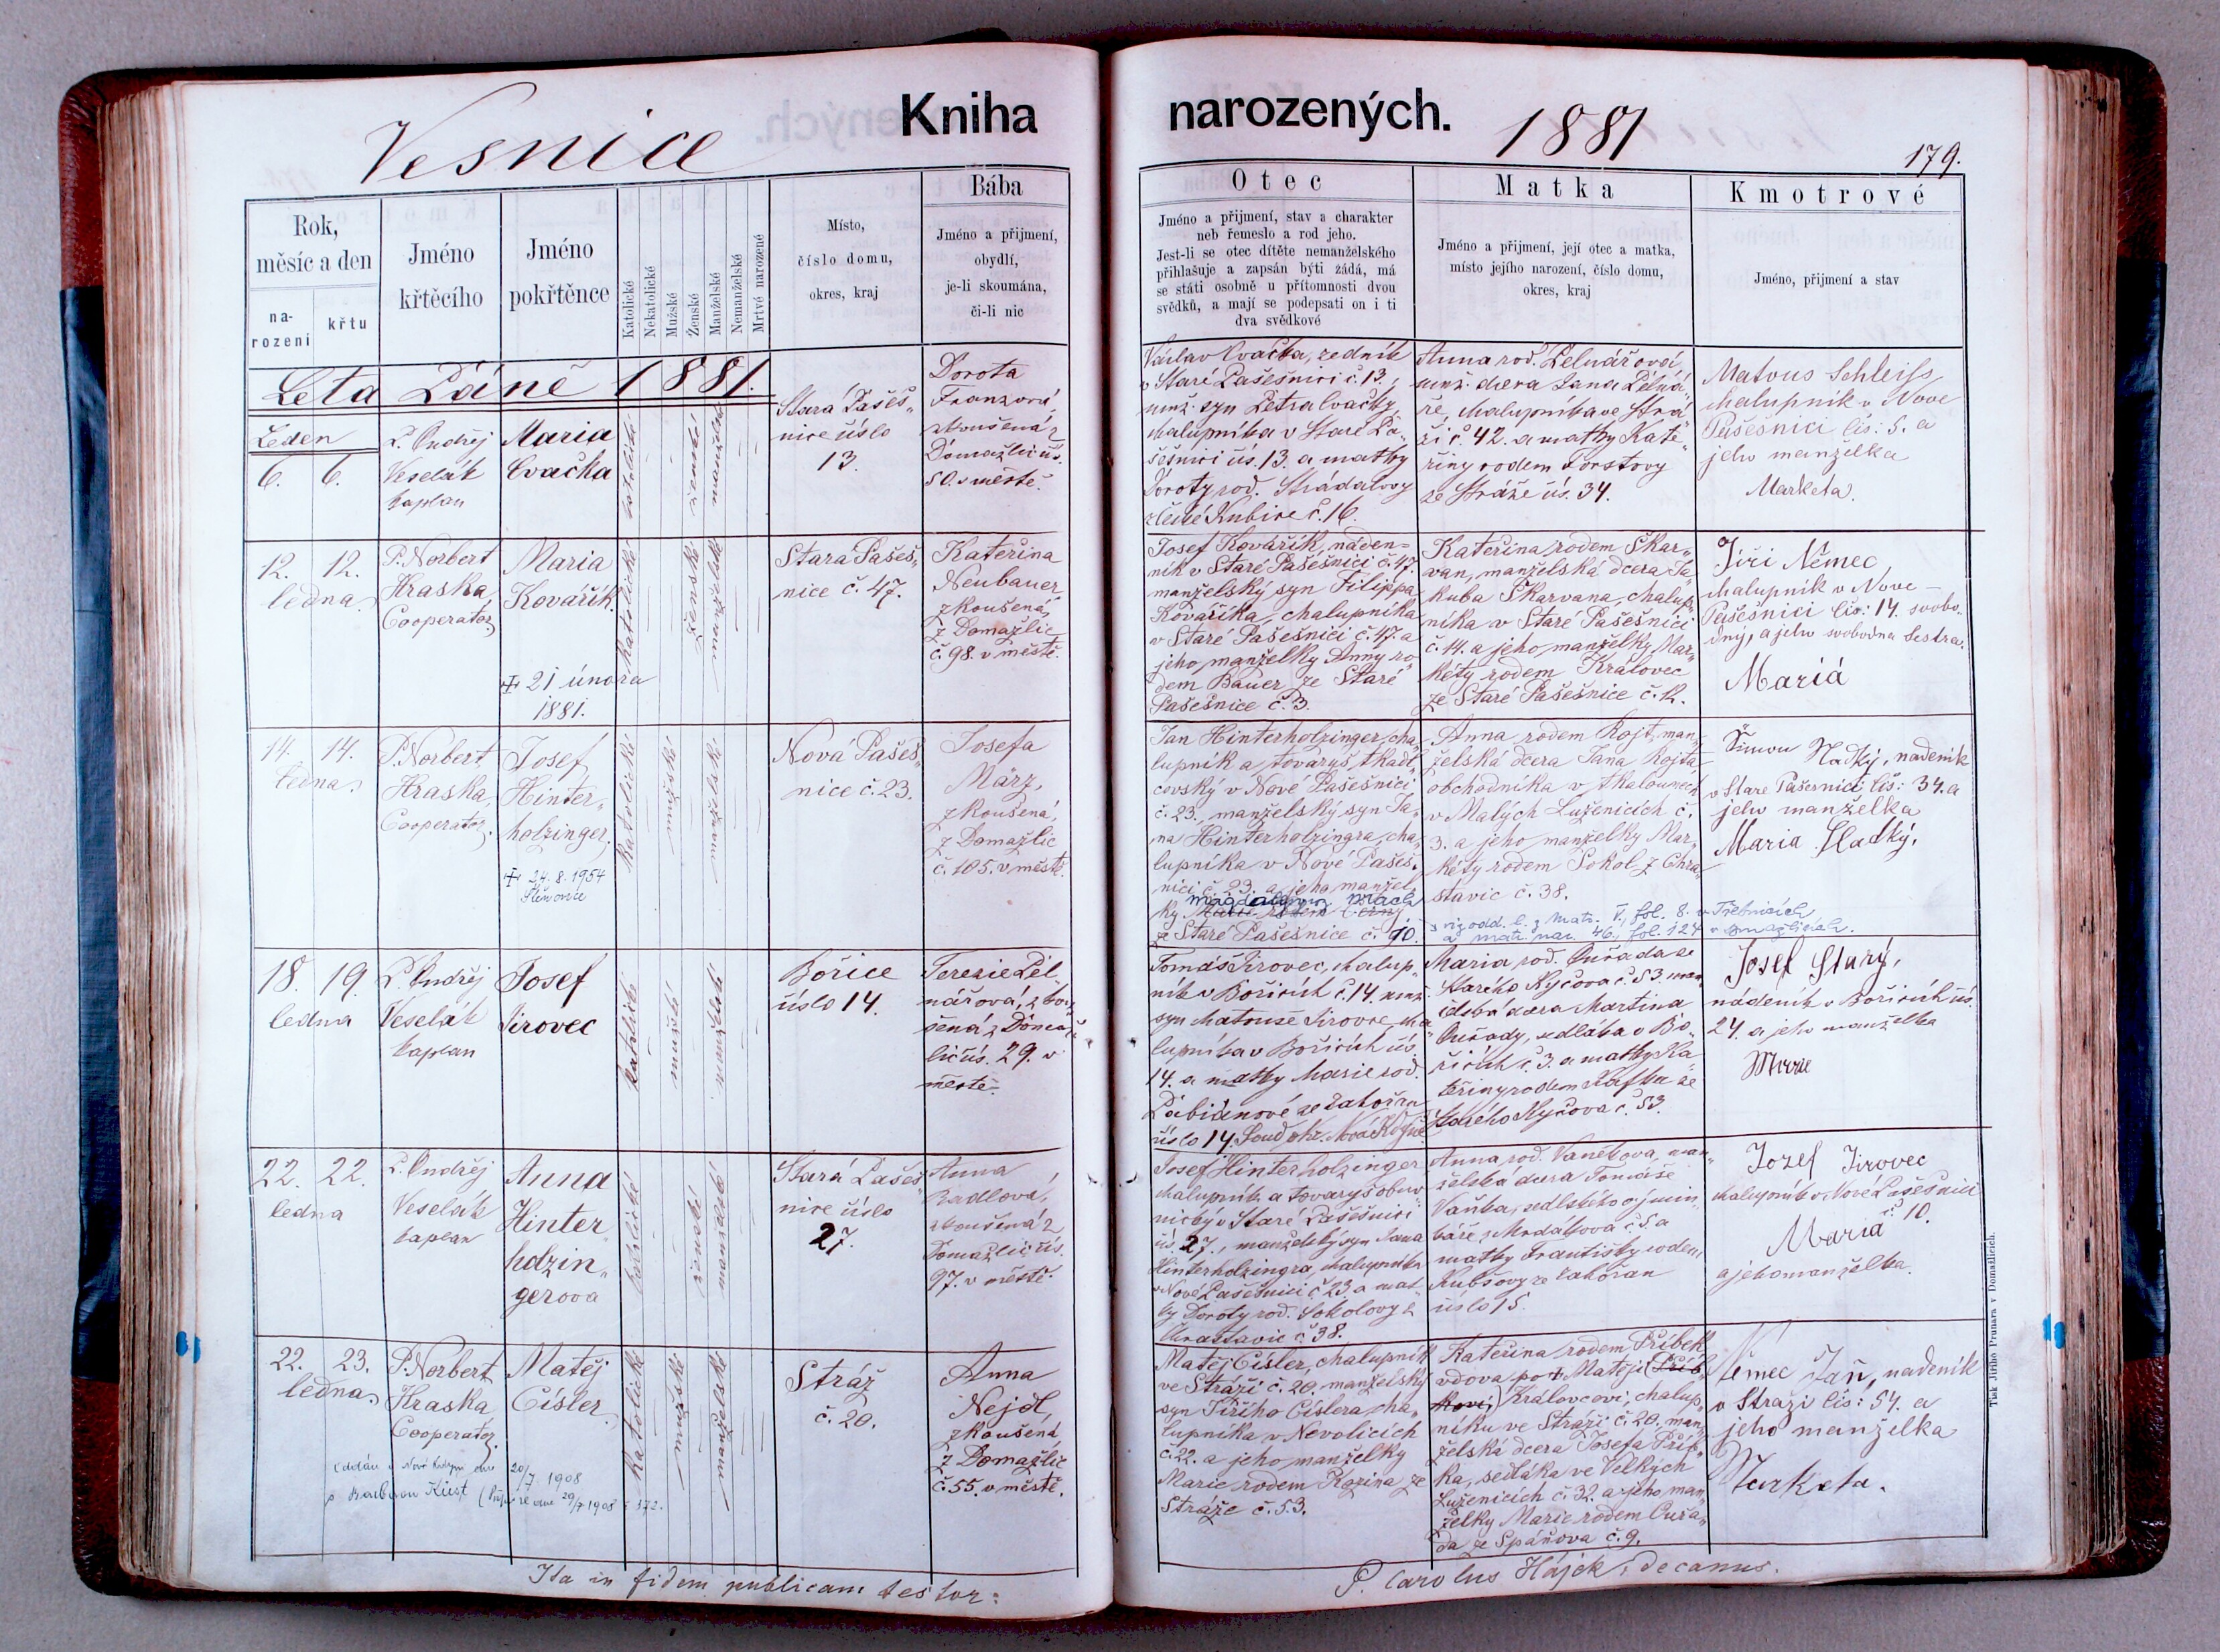 Vesnice
Kniha
narozených.
1881
179.
Rok,
měsíc a den
na-
rození
křtu
Jméno
křtěcího
Jméno
pokřtěnce
Katolické
Nekatolické
Mužské
Ženské
Manželské
Nemanželské
Mrtvě narozené
Místo,
číslo domu,
okres, kraj
Bába
Jméno a přijmení,
obydlí,
je-li skoumána,
či-li nic
Otec
Jméno a přijmení, stav a charakter
neb řemeslo a rod jeho.
Jest-li se otec dítěte nemanželského
přihlašuje a zapsán býti žádá, má
se státi osobně u přítomnosti dvou
svědků, a mají se podepsati on i ti
dva svědkové
Matka
Jméno a přijmení, její otec a matka,
místo jejího narození, číslo domu,
okres, kraj
Kmotrové
Jméno, přijmení a stav
Leta Páně 1881.
Leden
6. 6.
P. Ondřej
Veselák
kaplan
Maria
Cvačka
katolické
ženské
manželské
Stará Pašeš„
nice číslo
13.
Dorota
Franzová,
zkoušená z
Domažlic čís.
50. v městě.
Václav Cvačka, zedník
v Staré Pašešnici č. 13.,
manž. syn Petra Cvačky,
chalupníka v Staré Pa„
šešnici čís. 13. a matky
Doroty rod. Strádalovy
z České Kubice č. 16.
Anna rod. Pelnářová
manž. dcera Jana Pelná„
ře, chalupníka ve Strá„
ži č. 42. a matky Kate„
řiny rodem Forstovy
ze Stráže čís. 34.
Matous Schleiss
chalupnik v Nove
Pašešnici čis: 5. a
jeho manželka
Marketa.
12. 12.
ledna
P. Norbert
Hraska,
Cooperator.
Maria
Kovařík.
✠ 21 února
1881.
Katolické
ženské
manželské
Stará Pašeš„
nice č. 47.
Kateřina
Neubauer
zkoušená,
z Domažlic
č. 98. v městě.
Josef Kovařík, náden=
ník v Staré Pašešnici č. 47.
manželský syn Filippa
Kovaříka, chalupníka
v Staré Pašešnici č. 47. a
jeho manželky Anny ro„
dem Bauer ze Staré
Pašešnice č. 3.
Kateřina rodem Škar„
van, manželská dcera Ja„
kuba Škarvana, chalup„
níka v Staré Pašešnici
č. 14. a jeho manželky Mar„
kéty rodem Královec
ze Staré Pašešnice č. 12.
Jiři Němec
chalupnik v Nove
Pašešnici čis: 14. svobo„
dný, a jeho svobodna sestra.
Mariá
14. 14.
ledna
P. Norbert
Hraska,
Cooperator.
Josef
Hinter„
holzinger.
✠ 24. 8. 1954
Katolické
mužské
manželské
Nová Pašeš„
nice č. 23.
Josefa
März,
zkoušená,
z Domažlic
č. 105. v městě.
Jan Hinterholzinger, cha„
lupník a tovaryš tkadl„
covský v Nové Pašešnici
č. 23., manželský syn Ja„
na Hinterholzingra, cha„
lupníka v Nové Pašeš„
nici č. 23. a jeho manžel„
ky
ze Staré Pašešnice č. 90.
Anna rodem Rojt, man„
želská dcera Jana Rojta,
obchodníka v tkalounech
v Malých Luženicích č.
3. a jeho manželky Mar„
kéty rodem Sokol z Chra„
stavic č. 38.
Šimon Sladký, nadenik
v Stare Pašešnici čis: 34. a
jeho manželka
Maria Sladký.
18. 19.
ledna
P. Ondřej
Veselák
kaplan
Josef
Jirovec
katolické
mužské
manželské
Bořice
číslo 14.
Terezie Pel„
nářová, zkou„
šená z Domaž„
lic čís. 29. v
městě.
Tomáš Jirovec, chalup„
ník v Bořicích č. 14. manž.
syn Matouše Jirovce, cha„
lupníka v Bořicích čís.
14. a matky Marie rod.
Pabianové ze Zahořan
číslo 14.
Maria rod. Cuřada ze
Starého Klyčova č. 53. man„
želská dcera Martina
Cuřady, sedláka v Bo„
řicích č. 3. a matky Ka„
teřiny rodem Kafka ze
Starého Klyčova č. 53.
Josef Starý,
nádeník v Bořicích čís.
24. a jeho manželka
Marie
22. 22.
ledna
P. Ondřej
Veselák
kaplan
Anna
Hinter„
holzin„
gerova
katolické
ženské
manželské
Stará Pašeš„
nice číslo
27.
Anna
Badlová,
zkoušená z
Domažlic čís.
97. v městě.
Josef Hinterholzinger
chalupník a tovaryš obuv„
nický v Staré Pašešnici
čís. 27., manželský syn Jana
Hinterholzingra, chalupníka
v Nové Pašešnici č. 23 a mat„
ky Doroty rod. Sokolovy z
Chrastavic č. 38.
Anna, rod. Vaňkova, man„
želská dcera Tomáše
Vaňka,
z Mrdákova č. 5. a
matky Františky rodem
Kubšovy ze Zahořan
číslo 15.
Jozef Jirovec
chalupník v Nové Pašešnici
č. 10.
Maria
a jeho manželka.
22. 23.
ledna
P. Norbert
Hraska
Cooperator.
Matěj
Císler.
Katolické
mužské
manželské
Stráž
č. 20.
Anna
Nejdl,
zkoušená
z Domažlic
č. 55. v městě.
Matěj Císler, chalupník
ve Stráži č. 20. manželský
syn Jiřího Císlera, cha„
lupníka v Nevolicích
č. 22. a jeho manželky
Marie rodem Kozina ze
Stráže č. 53.
Kateřina rodem Příbek
vdova po † Matěji
Královcovi, chalup„
níku ve Stráži č. 20. man„
želská dcera Josefa Příb„
ka, sedláka ve Velkých
Luženicích č. 32. a jeho man„
želky Marie rodem Cuřa„
da ze Spáňova č. 9.
Němec Jañ, nadenik
v Straži čis: 54. a
jeho manželka
Marketa.
Ita in fidem publicam testor:
P. Carolus Hájek, decanus.
Tisk Jiřího Prunara v Domažlicích.